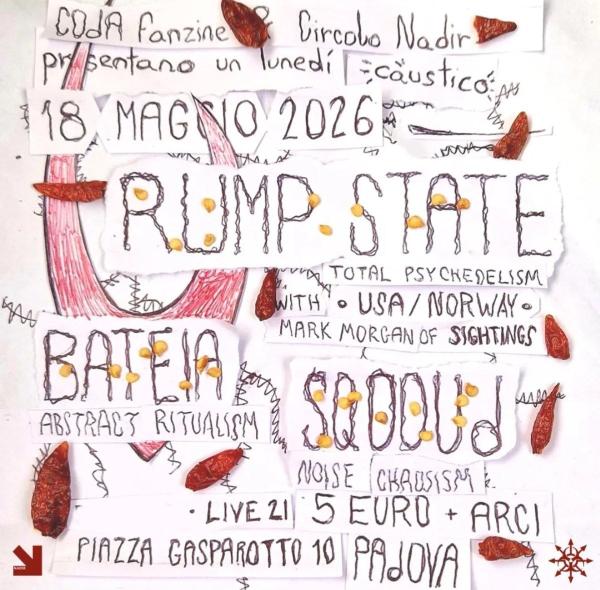 CODA fanzine & Circolo Nadir
presentano un lunedí caustico
18 MAGGIO 2026
RUMP STATE
TOTAL PSYCHEDELISM
WITH • USA / NORWAY •
MARK MORGAN OF SIGHTINGS
BATEIA
ABSTRACT RITUALISM
SQODUd
NOISE CHAOSISM
• LIVE 21 5 EURO + ARCI
PIAZZA GASPAROTTO 10 PADOVA